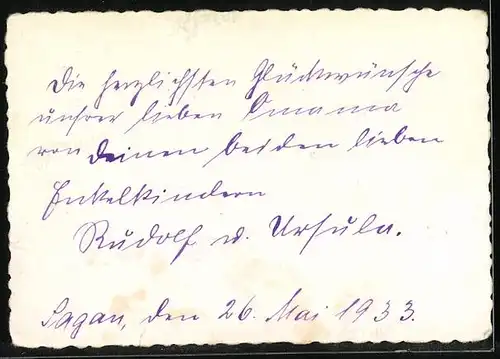 Die herzlichsten Glückwünsche
unsrer lieben Omama
von Deinen beiden lieben
Enkelkindern
Rudolf u. Ursula.
Sagan, den 26. Mai 1933.